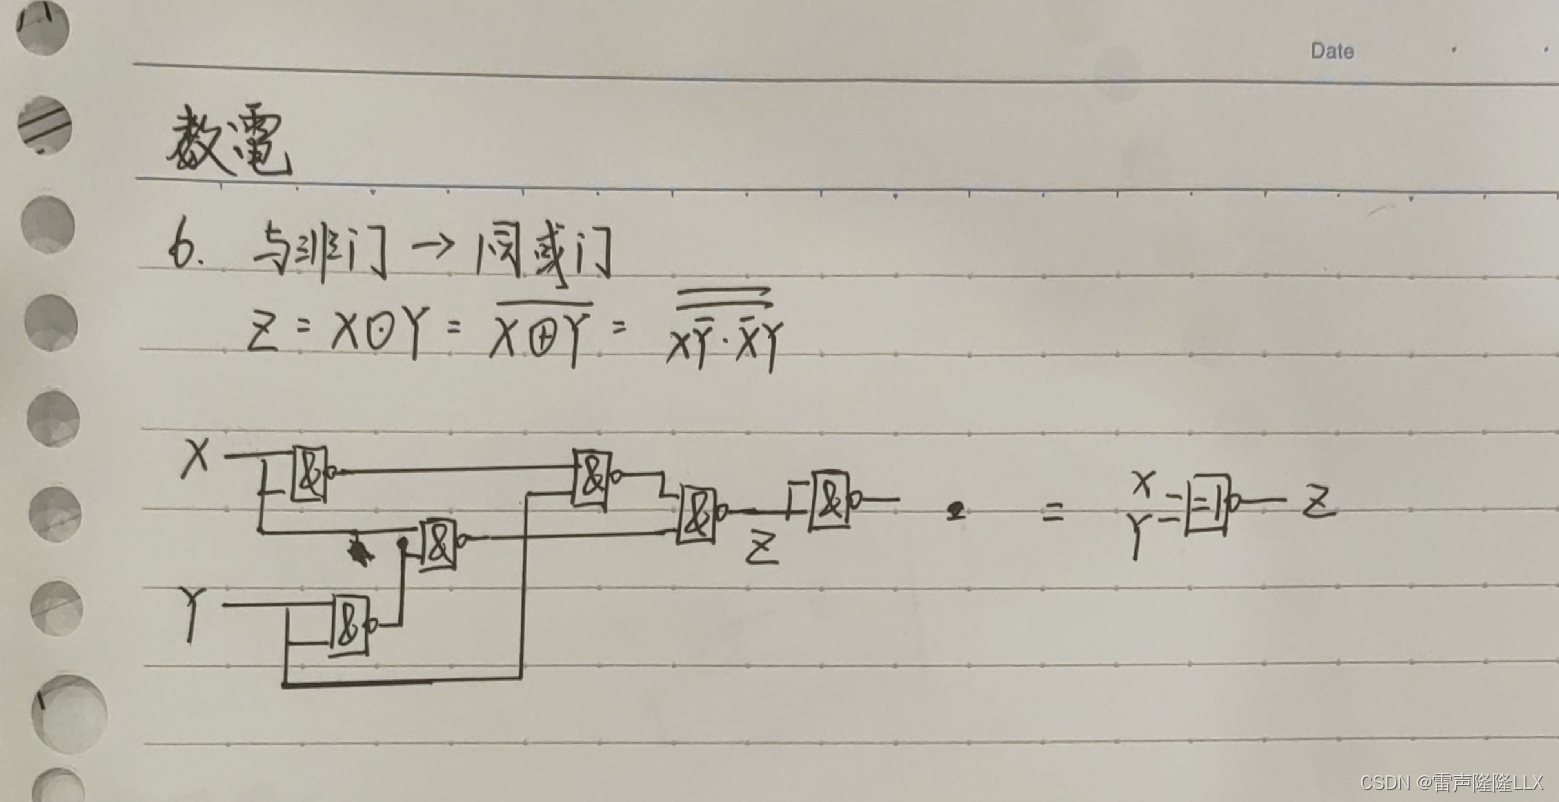 Date
数電
6. 与非门 → 同或门
Z = X⊙Y = \overline{X⊕Y} = \overline{\overline{X\overline{Y}·\overline{X}Y}}
X & & & & = X Y =1 Z
& Z
Y &
CSDN @雷声隆隆LLX